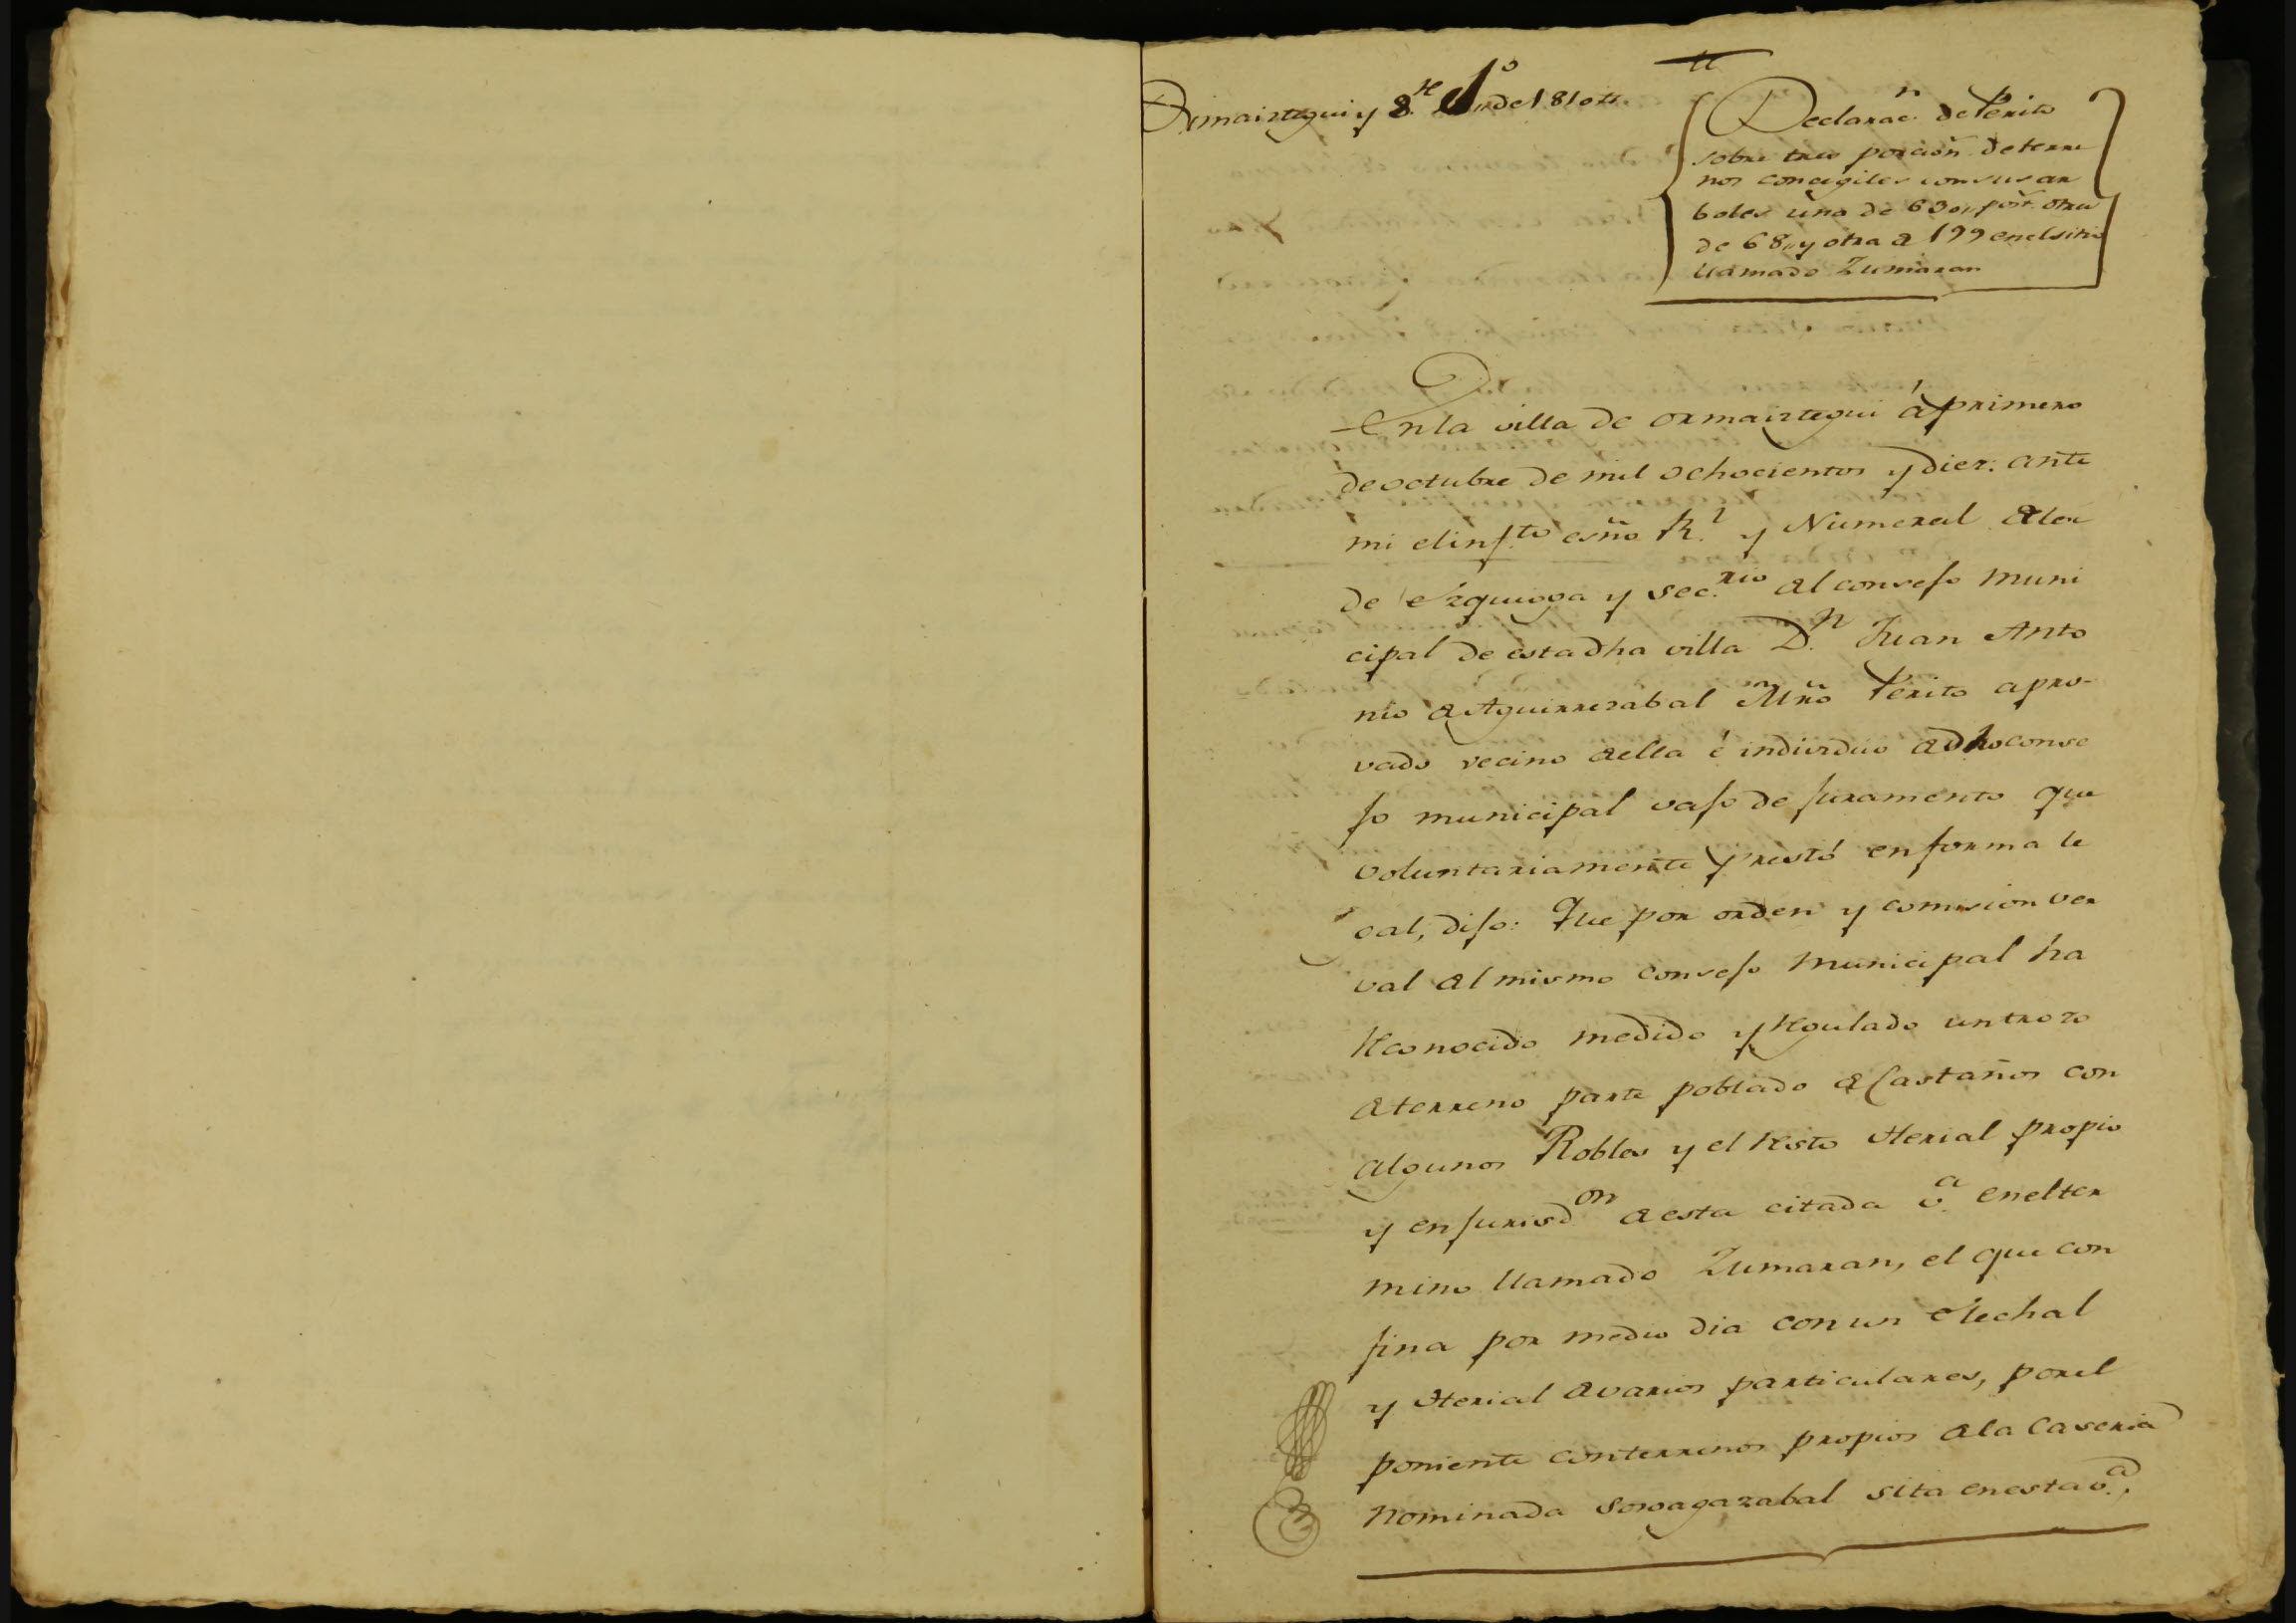 Ormaiztegui y 8.re 1.º de 1810
Declarac.n de Perito
sobre tres porción de terre
nos concegiles con sus ar
boles una de 630,, post. otra
de 68,, y otra de 199 en el sitio
llamado Zumaran
En la villa de ormaiztegui á primero
de octubre de mil ochocientos y diez: ante
mi el inf.to esño R.l y Numeral de la
de Ezquioga y sec.rio del consejo muni
cipal de esta dha villa D.n Juan Anto
nio de Aguirrezabal Mro Perito apro-
vado vecino de ella é individuo de dho conse
jo municipal vajo de juramento que
voluntariamente prestó en forma le
gal, dijo: Que por orden y comision ver
val del mismo consejo municipal ha
reconocido medido y regulado un trozo
de terreno parte poblado de Castaños con
algunos Robles y el resto Herial propio
y en jurisd.on de esta citada v.a en el ter
mino llamado Zumaran, el que con
fina por medio dia con un elechal
y Herial de varios particulares, por el
poniente con terrenos propios de la Caseria
nominada Soroagazabal sita en esta v.a,